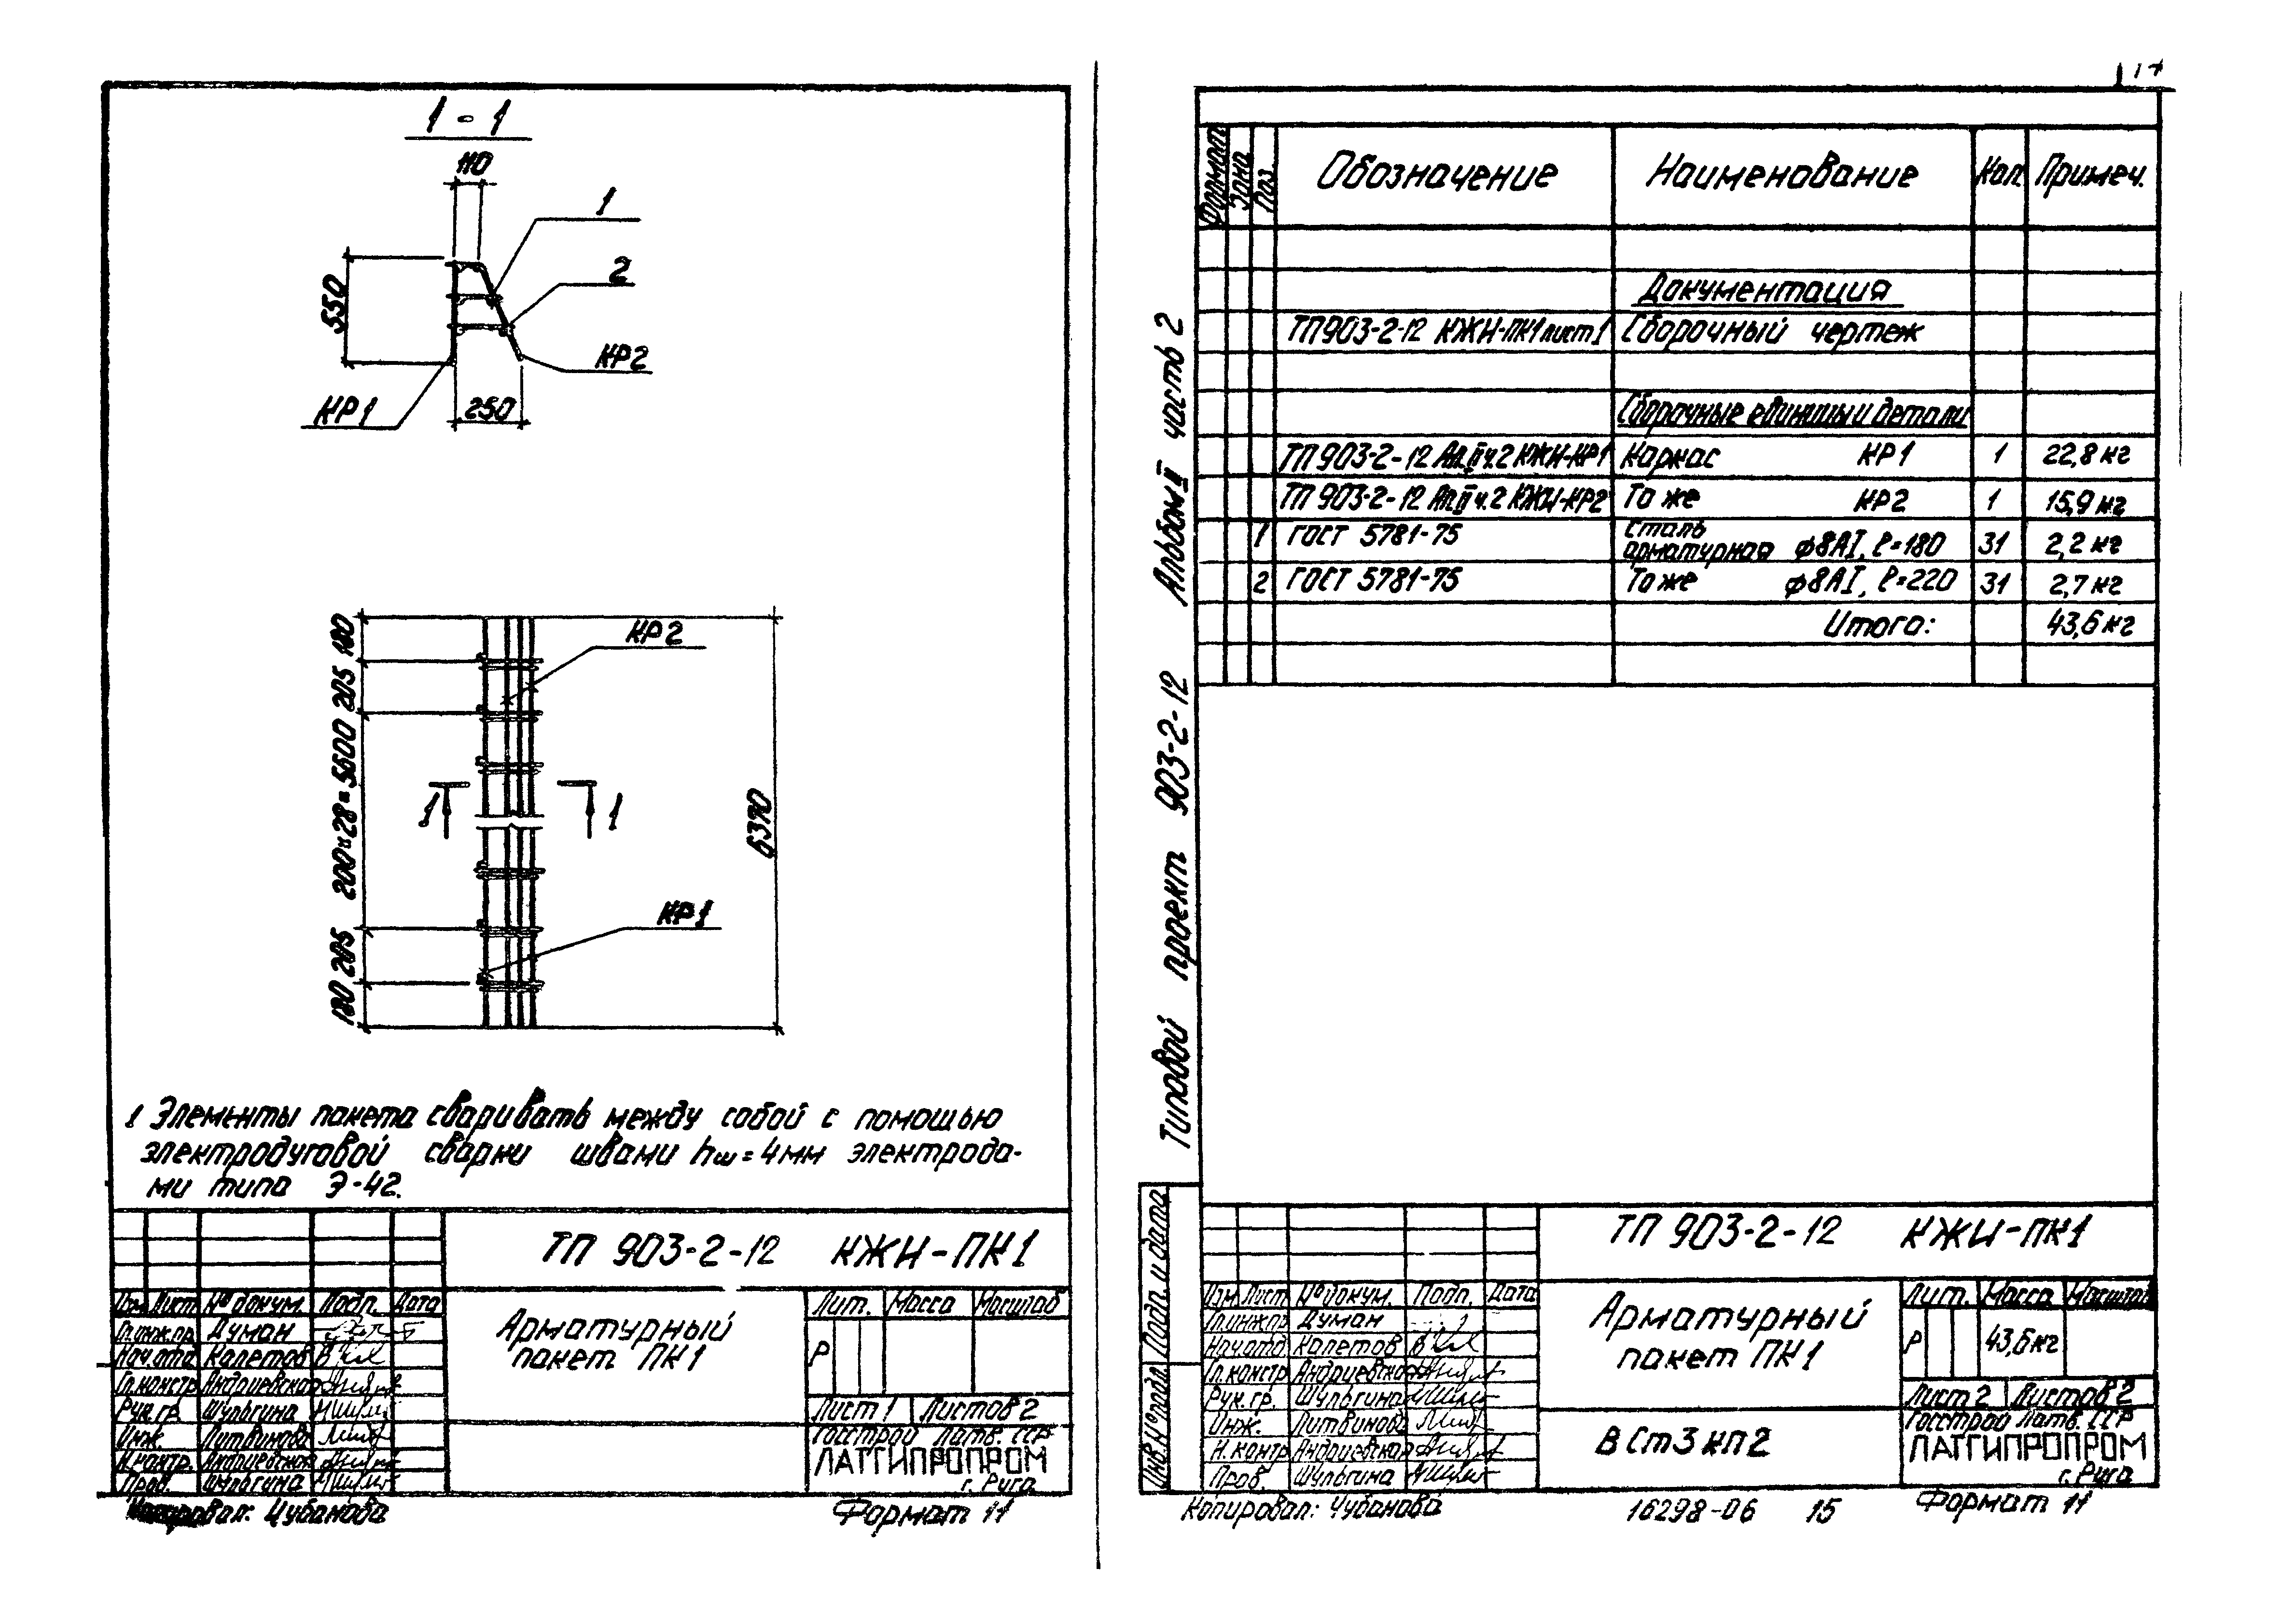 1-1
110
1
2
550
КР2
КР1
250
180
205
200x28=5600
205
180
КР2
1
1
6370
КР1
1 Элементы пакета сваривать между собой с помощью
электродуговой сварки швами hш=4мм электрода-
ми типа Э-42.
ТП 903-2-12 КЖИ-ПК1
Изм. Лист № докум. Подп. Дата
Гл.инж.пр. Думан
Нач.отд. Калетов
Гл.констр. Андриевская
Рук.гр. Шульгина
Инж. Литвинова
Н.контр. Андриевская
Пров. Шульгина
Арматурный
пакет ПК1
Лит. Масса Масштаб
Р
Лист 1 Листов 2
Госстрой Латв. ССР
ЛАТГИПРОПРОМ
г. Рига
Копировал: Чубанова
Формат 11
Альбом II часть 2
Типовой проект 903-2-12
Подп. и дата
Инв.№подл.
Формат Зона Поз. Обозначение Наименование Кол. Примеч.
Документация
ТП903-2-12 КЖИ-ПК1 лист 1 Сборочный чертеж
Сборочные единицы и детали
ТП 903-2-12 Ал.II ч.2 КЖИ-КР1 Каркас КР1 1 22,8 кг
ТП 903-2-12 Ал.II ч.2 КЖИ-КР2 То же КР2 1 15,9 кг
1 ГОСТ 5781-75 Сталь
арматурная ф8АI, ℓ=180 31 2,2 кг
2 ГОСТ 5781-75 То же ф8АI, ℓ=220 31 2,7 кг
Итого: 43,6 кг
ТП 903-2-12 КЖИ-ПК1
Изм. Лист № докум. Подп. Дата
Гл.инж.пр. Думан
Нач.отд. Калетов
Гл.констр. Андриевская
Рук.гр. Шульгина
Инж. Литвинова
Н.контр. Андриевская
Пров. Шульгина
Арматурный
пакет ПК1
Лит. Масса Масштаб
Р 43,6кг
Лист 2 Листов 2
ВСт3кп2
Госстрой Латв. ССР
ЛАТГИПРОПРОМ
г. Рига
Копировал: Чубанова
16298-06 15
Формат 11